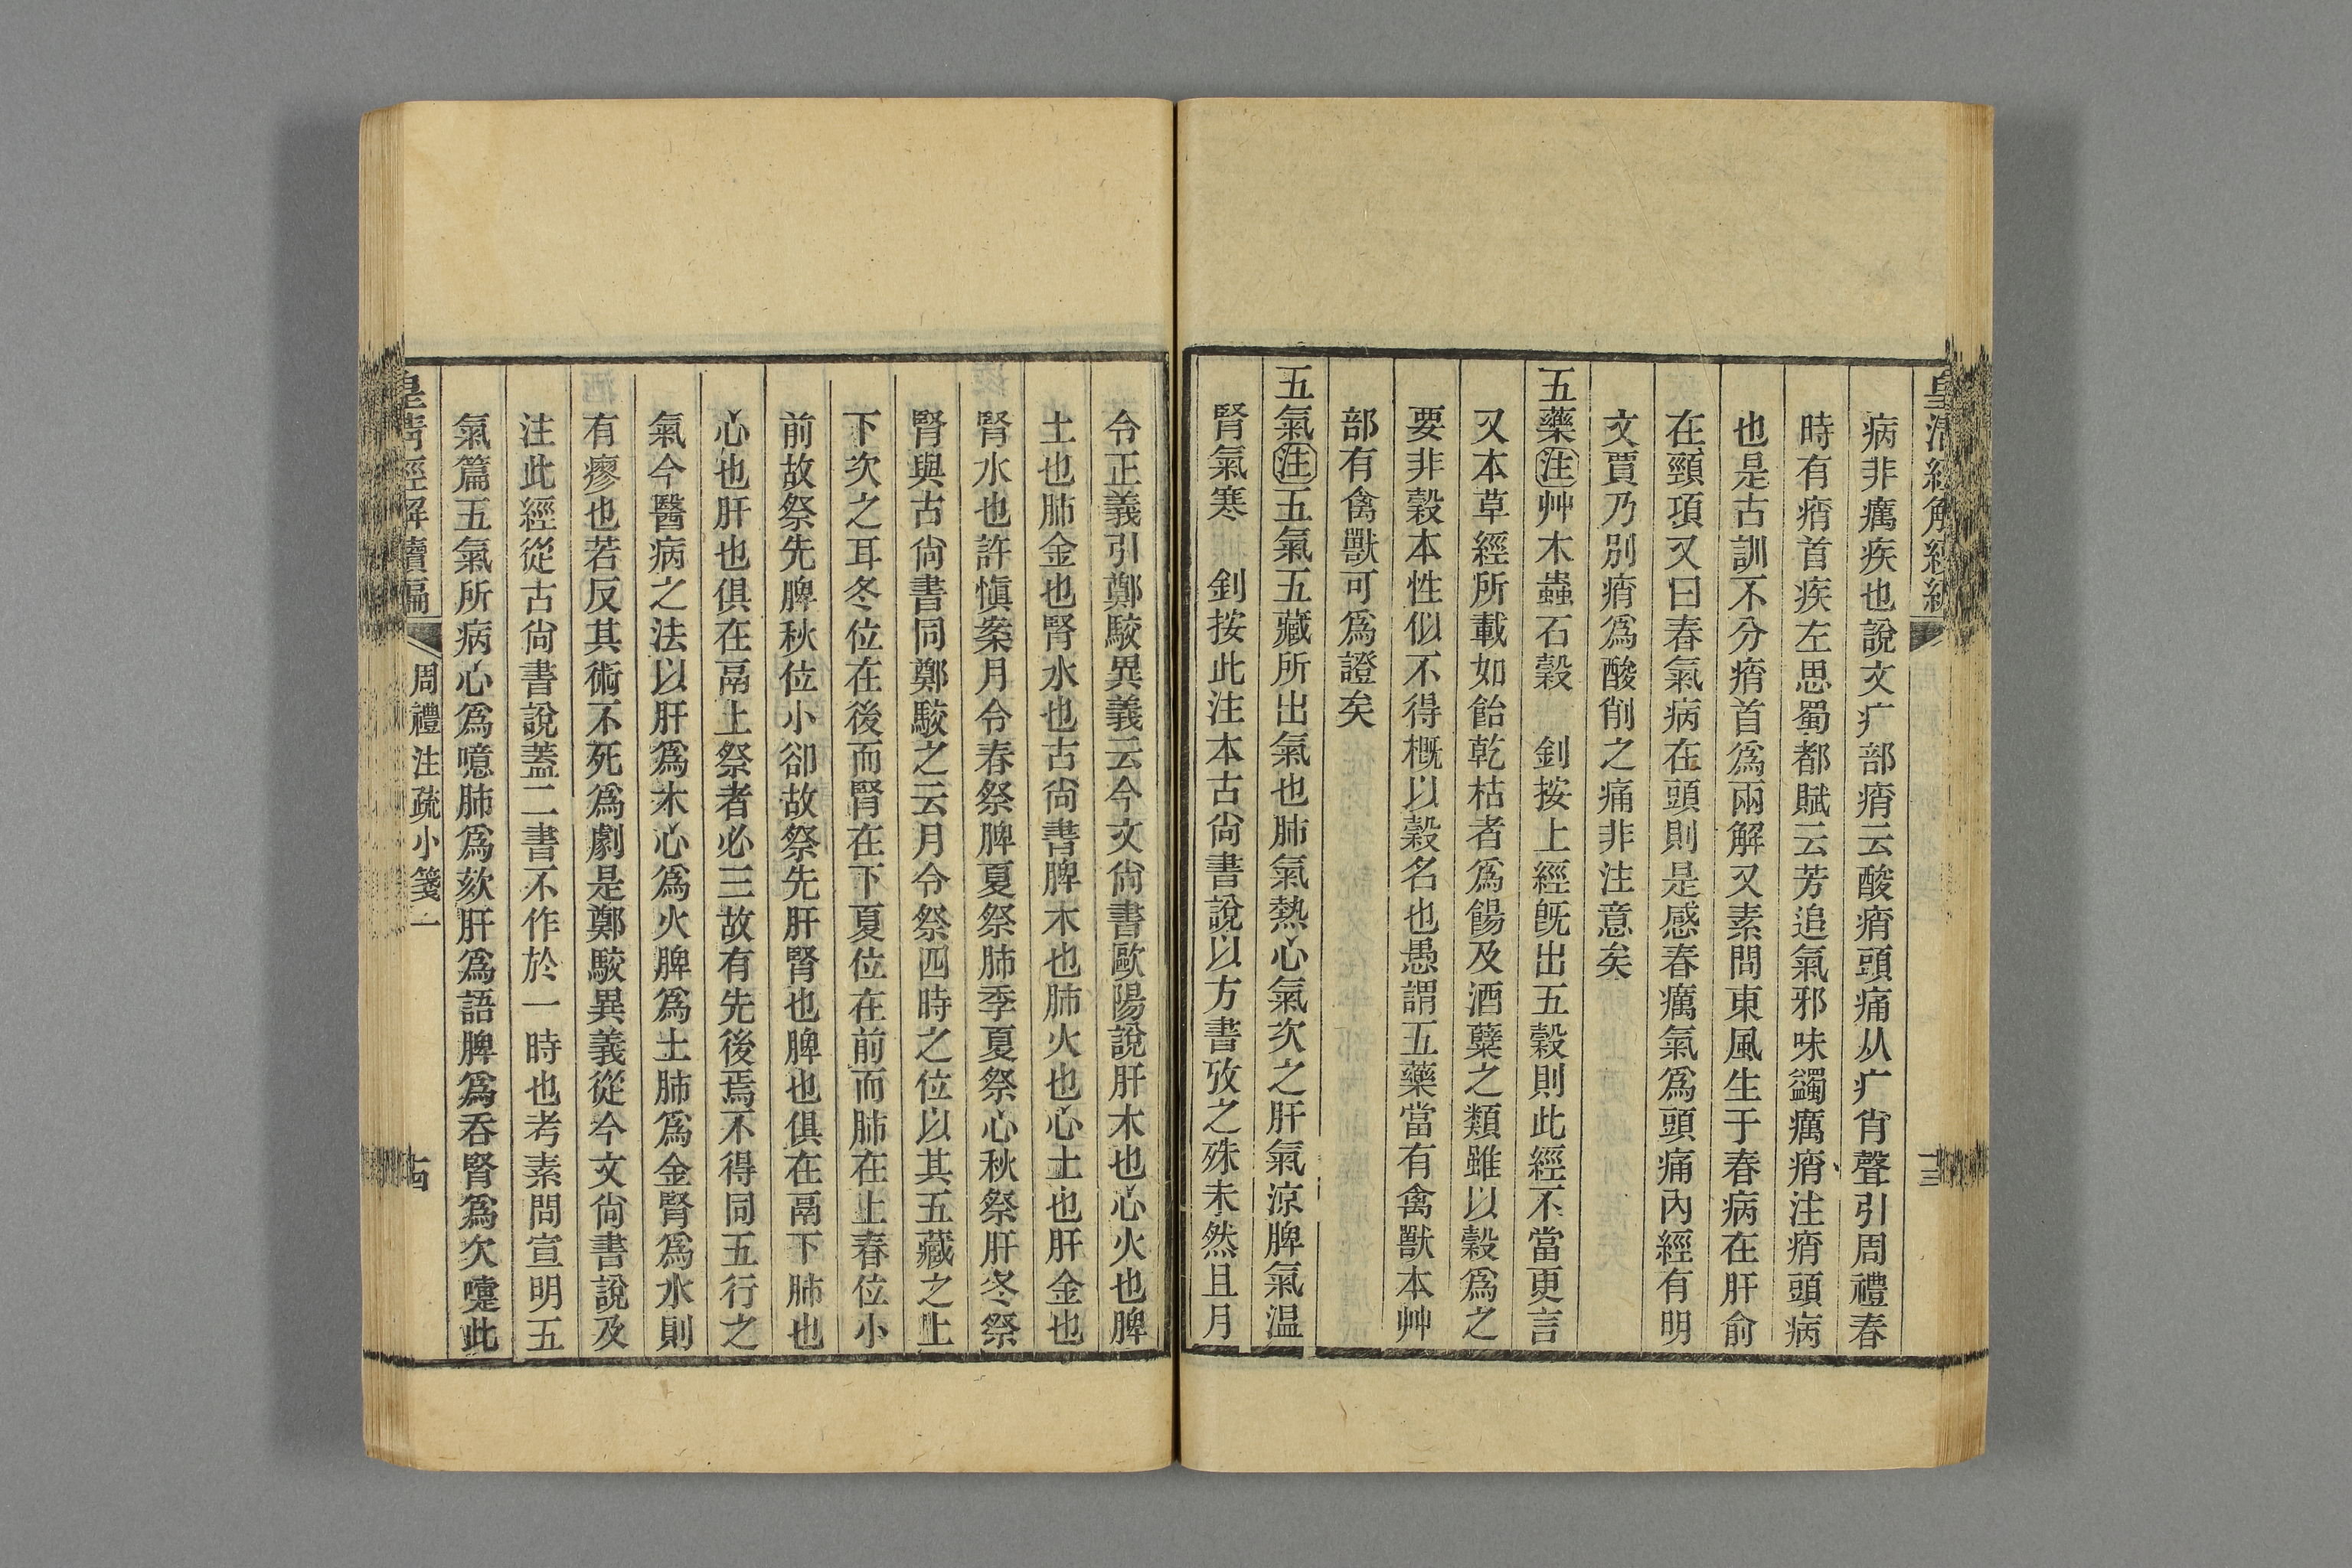 皇清經解續
十三
病非癘疾也說文疒部痟云酸痟頭痛从疒肖聲引周禮春
時有痟首疾左思蜀都賦云芳追氣邪味蠲癘痟注痟頭病
也是古訓不分痟首爲兩解又素問東風生于春病在肝俞
在頸項又曰春氣病在頭則是感春癘氣爲頭痛內經有明
文賈乃別痟爲酸削之痛非注意矣
五藥注艸木蟲石穀　釗按上經旣出五穀則此經不當更言
又本草經所載如飴乾枯者爲餳及酒糵之類雖以穀爲之
要非穀本性似不得槪以穀名也愚謂五藥當有禽獸本艸
部有禽獸可爲證矣
五氣注五氣五藏所出氣也肺氣熱心氣次之肝氣涼脾氣温
腎氣寒　釗按此注本古尙書說以方書攷之殊未然且月
令正義引鄭駮異義云今文尙書歐陽說肝木也心火也脾
土也肺金也腎水也古尙書脾木也肺火也心土也肝金也
腎水也許愼案月令春祭脾夏祭肺季夏祭心秋祭肝冬祭
腎與古尙書同鄭駮之云月令祭四時之位以其五藏之上
下次之耳冬位在後而腎在下夏位在前而肺在上春位小
前故祭先脾秋位小卻故祭先肝腎也脾也俱在鬲下肺也
心也肝也俱在鬲上祭者必三故有先後焉不得同五行之
氣今醫病之法以肝爲木心爲火脾爲土肺爲金腎爲水則
有瘳也若反其術不死爲劇是鄭駮異義從今文尙書說及
注此經從古尙書說蓋二書不作於一時也考素問宣明五
氣篇五氣所病心爲噫肺爲欬肝爲語脾爲吞腎爲欠嚏此
皇清經解續編
周禮注疏小箋一
十四